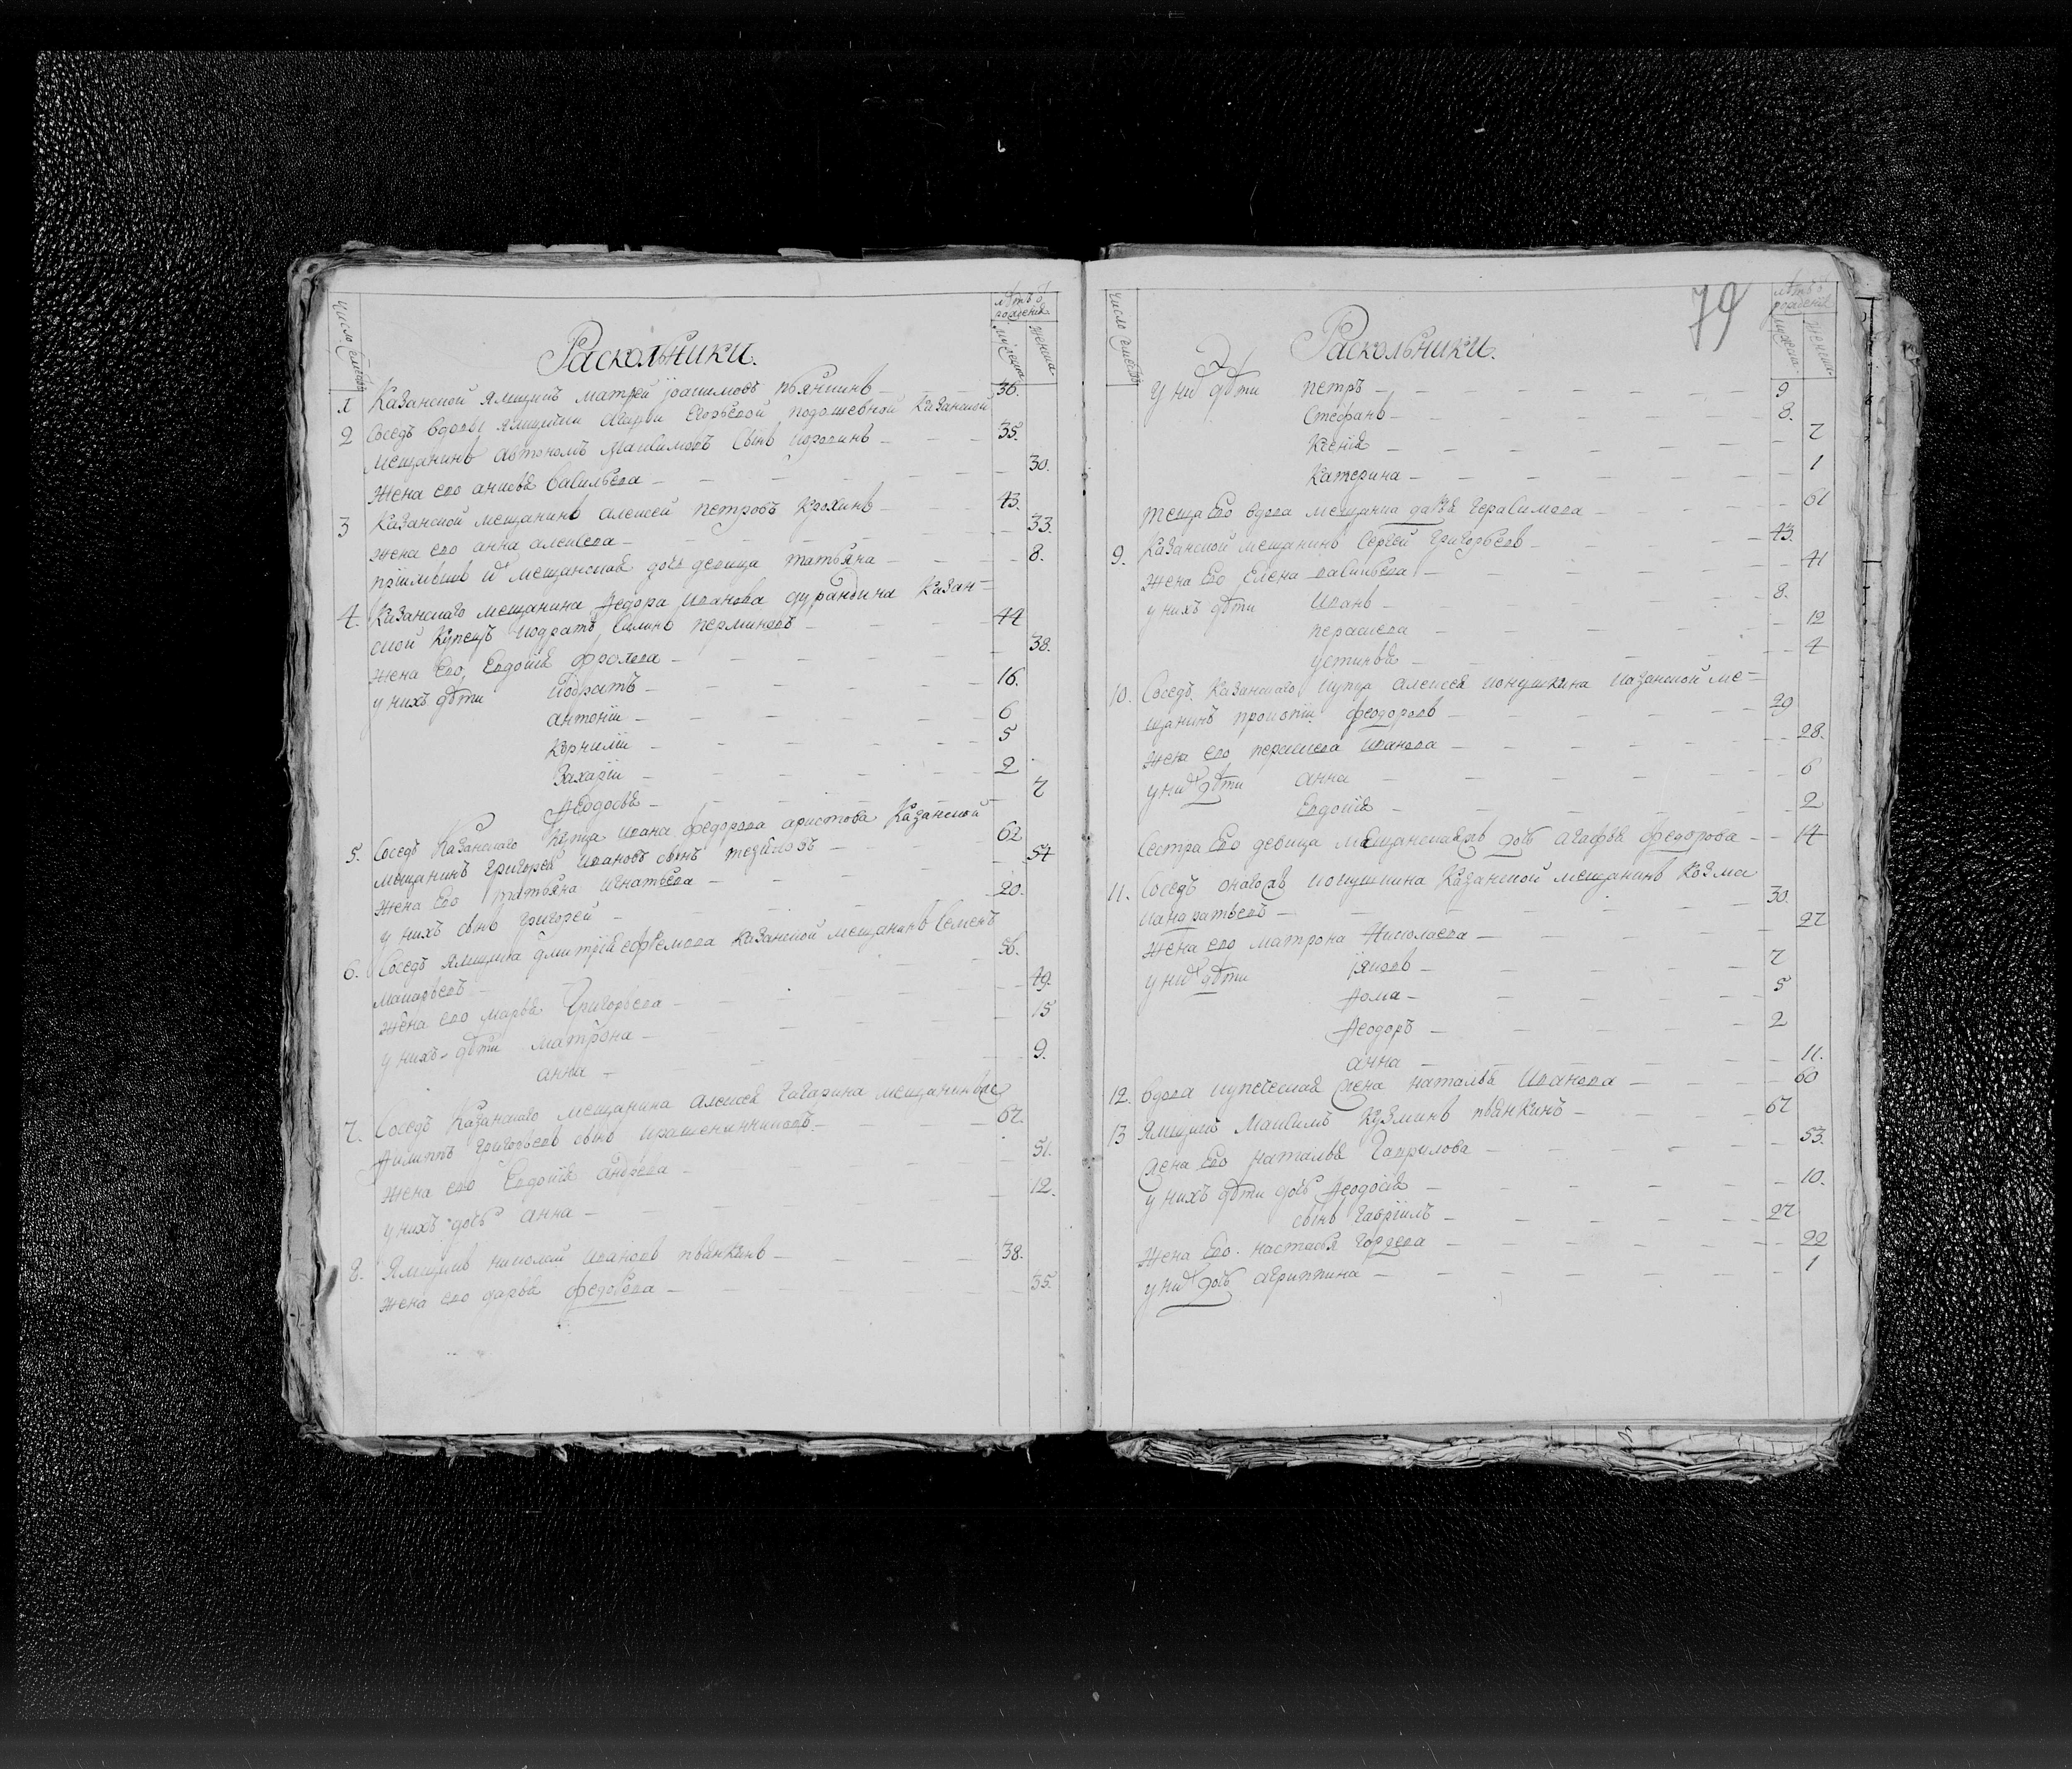 число
лѣтъ ѿ рожденія
мужеска
женска
Раскольники.
1 Казанской ямщикъ матѳей їоакимовъ пьянкинъ 36.
2 Соседъ вдовы ямщички Егорьевой подошевной казанской
мещанинъ автономъ Максимовъ сынъ 35.
жена ево анисья васильева 30.
3 Казанской мещанинъ алексей петровъ крохинъ 43.
жена ево анна алексеева 33.
мещанская дочь девица татьяна 8.
4. Казанскаго мещанина Ѳедора Иванова дурандина казан=
ской купецъ кодратъ силинъ перминовъ 44
жена ево, Евдокия фролова 38.
у нихъ дѣти Кодратъ 16.
антоній 6
Корнилій 5
Захарій 2
Ѳеодосья 7
5. Соседъ Казанскаго купца ивана федорова аристова Казанской
мещанинъ григорей ивановъ сынъ 62
жена ево татьяна игнатьева 54
у нихъ сынъ григорей 20.
6. Соседъ ямщика дмитрія ефремова казанской мещанинъ семенъ
56.
жена ево марья Григорьева 49.
у нихъ дѣти матрона 15
анна 9.
7. Соседъ Казанскаго мещанина алексея гагарина мещанинъ
Филиппъ григорьевъ сынъ 67.
жена ево Евдокия андреева 51.
у нихъ дочь анна 12.
8. Ямщикъ николай ивановъ пьянкинъ 38.
жена ево дарья федорова 35.
79
число
лѣтъ ѿ рожденія
мужеска
женска
Раскольники.
у ниⷯ дѣти петръ 9
Стефанъ 8.
Ксенія 7
Катерина 1
теща ево вдова мещанка дарья герасимова 61
9. Казанской мещанинъ Сергей григорьевъ 43.
жена ево Елена васильева 41
у нихъ дѣти иванъ 8.
парасковя 12
устинья 4
10. Соседъ. Казанскаго купца алексея кокушкина казанской ме=
щанинъ прокопій феодоровъ 29
жена ево парасковя иванова 28.
у ниⷯ дѣти анна 6
Евдокия 2
сестра ево девица мещанская дочь агафья федорова 14
11. Соседъ онагожъ кокушкина казанской мещанинъ козма
30.
жена ево матрона Николаева 27
у ниⷯ дѣти їяковъ 7
Ѳома 5
Ѳеодоръ 2
анна 11.
12. вдова купеческая жена наталья Иванова 60
13 ямщикъ Максимъ кузминъ пьянкинъ 67
жена ево наталья гаврилова 53.
у нихъ дѣти дочь Ѳеодосія 10.
сынъ гавріилъ 27
жена ево. настасья 22
у ниⷯ дочь агриппина 1